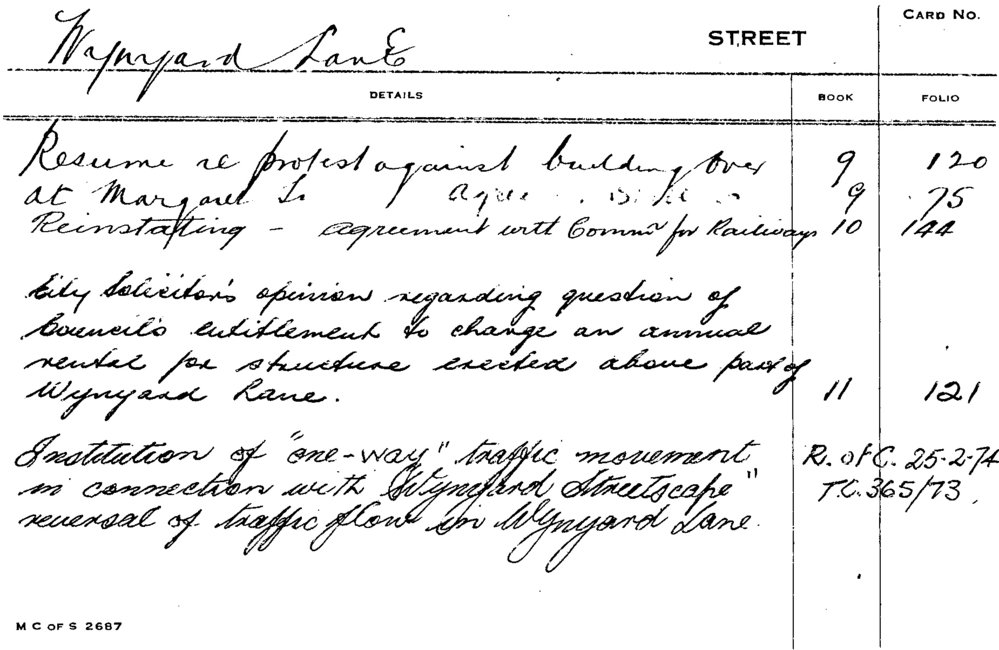 Wynyard Lane STREET CARD NO.
DETAILS BOOK FOLIO
Resume re protest against building over 9 120
at Margaret 9 75
Reinstating - agreement with Commr for Railways 10 144
City Solicitor's opinion regarding question of
Council's entitlement to charge an annual
rental for structure erected above part of
Wynyard Lane. 11 121
Institution of "one-way" traffic movement R. of C. 25-2-74
in connection with "Wynyard Streetscape" T.C. 365/73.
reversal of traffic flow in Wynyard Lane.
M C OF S 2687